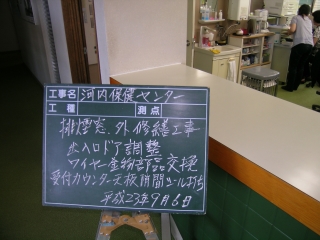 工事名 河内保健センター
工種 測点
排煙窓.外修繕工事
出入口ドア調整
ワイヤー金物部品交換
受付カウンター天板目間シール打ち
平成23年9月6日